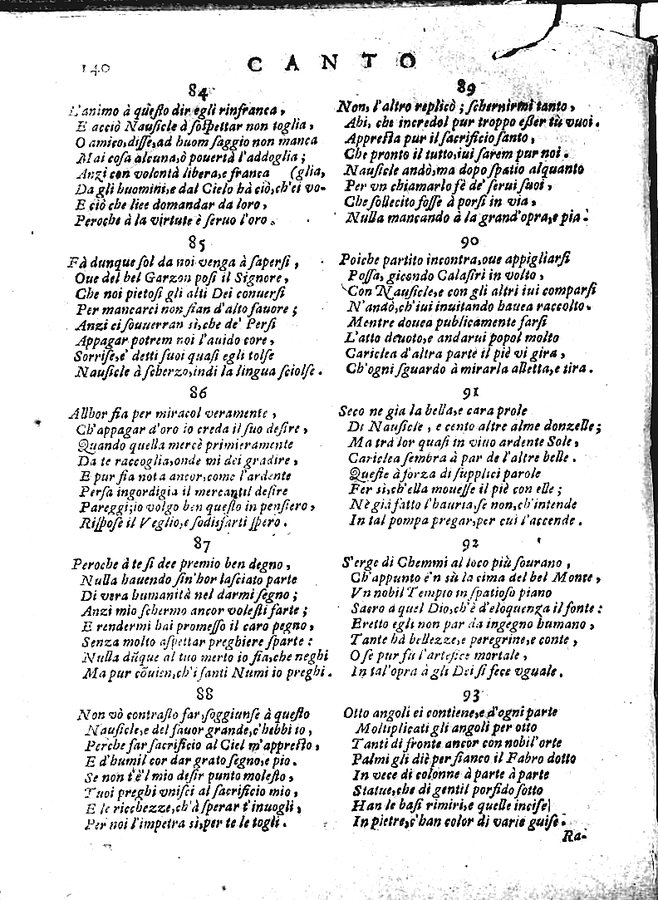 140
CANTO
84
L'animo à questo dir egli rinfranca,
E acciò Nausicle à sospettar non toglia,
O amico, disse, ad huom saggio non manca
Mai cosa alcuna, ò povertà l'addoglia;
Anzi con volontà libera, e franca (glia,
Da gli huomini, e dal Cielo hà ciò, ch'ei vo-
E ciò che lice domandar da loro,
Peroche à la virtute è seruo l'oro.
85
Fà dunque sol da noi venga à sapersi,
Oue del bel Garzon posi il Signore,
Che noi pietosi gli alti Dei conuersi
Per mancarci non sian d'alto fauore;
Anzi ci souuerran sì, che de' Persi
Appagar potrem noi l'auido core,
Sorrise, e' detti suoi quasi egli tolse
Nausicle à scherzo, indi la lingua sciolse.
86
Allhor fia per miracol veramente,
Ch'appagar d'oro io creda il suo desire,
Quando quella mercè primieramente
Da te raccoglia, onde mi dei gradire,
E pur sia nota ancor, come l'ardente
Persa ingordigia il mercantul desire
Pareggi; io volgo ben questo in pensiero,
Rispose il Veglio, e sodisfarti spero.
87
Peroche à te si dee premio ben degno,
Nulla hauendo sin'hor lasciato parte
Di vera humanità nel darmi segno;
Anzi mio schermo ancor volesti farte;
E rendermi hai promesso il caro pegno,
Senza molto aspettar preghiere sparte:
Nulla dũque al tuo merto io fia, che neghi
Ma pur cõuien, ch'i santi Numi io preghi.
88
Non vò contrasto far, soggiunse à questo
Nausicle, e del fauor grande, c'hebbi io,
Perche far sacrificio al Ciel m'appresto,
E d'humil cor dar grato segno, e pio.
Se non t'è'l mio desir punto molesto,
Tuoi preghi vnisci al sacrificio mio,
E le ricchezze, ch'à sperar t'inuogli,
Per noi l'impetra sì, per te le togli.
89
Non, l'altro replicò; schernirmi tanto,
Ahi, che incredol pur troppo esser tù vuoi.
Appresta pur il sacrificio santo,
Che pronto il tutto, iui sarem pur noi.
Nausicle andò, ma dopo spatio alquanto
Per vn chiamarlo fè de' serui suoi,
Che sollecito fosse à porsi in via,
Nulla mancando à la grand'opra, e pia.
90
Poiche partito incontra, oue appigliarsi
Possa, gicondo Calasiri in volto,
Con Nausicle, e con gli altri iui comparsi
N'andò, ch'iui inuitando hauea raccolto.
Mentre douea publicamente farsi
L'atto deuoto, e andarui popol molto
Cariclea d'altra parte il piè vi gira,
Ch'ogni sguardo à mirarla alletta, e tira.
91
Seco ne gia la bella, e cara prole
Di Nausicle, e cento altre alme donzelle;
Ma trà lor quasi in viuo ardente Sole,
Cariclea sembra à par de l'altre belle.
Queste à forza di supplici parole
Fer sì, ch'ella mouesse il piè con elle;
Nè già fatto l'hauria, se non, ch'intende
In tal pompa pregar, per cui l'accende.
92
S'erge di Chemmi al loco più sourano,
Ch'appunto è'n sù la cima del bel Monte,
Vn nobil Tempio in spatioso piano
Sacro a quel Dio, ch'è d'eloquenza il fonte:
Eretto egli non par da ingegno humano,
Tante hà bellezze, e peregrine, e conte,
O se pur fù l'artefice mortale,
In tal'opra à gli Dei si fece vguale.
93
Otto angoli ei contiene, e d'ogni parte
Moltiplicati gli angoli per otto
Tanti di fronte ancor con nobil'arte
Palmi gli diè per fianco il Fabro dotto
In vece di colonne à parte à parte
Statue, che di gentil porfido sotto
Han le basi rimiri, e quelle incise
In pietre, c'han color di varie guise.
Ra-